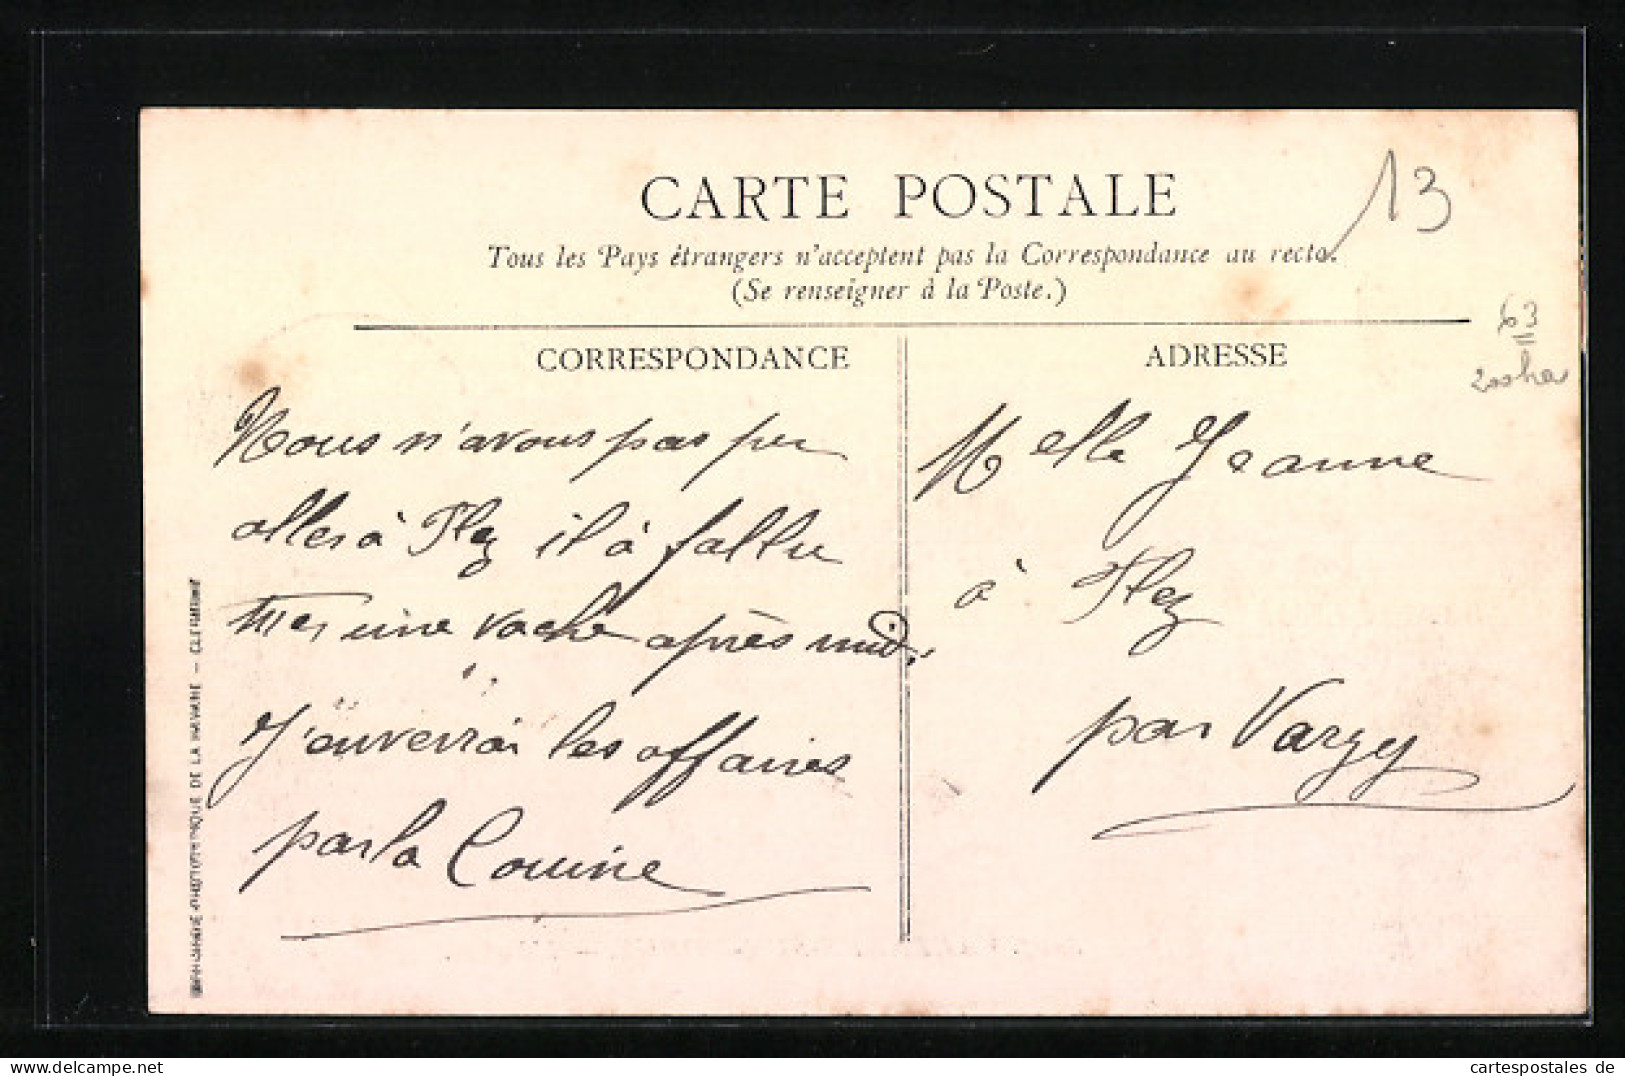 CARTE POSTALE
Tous les Pays étrangers n'acceptent pas la Correspondance au recto.
(Se renseigner à la Poste.)
13
63
CORRESPONDANCE
Nous n'avons pas pu
aller à Flez il à fallu
tuer une vache après midi
J'enverrai les affaires
par la Couine
ADRESSE
Melle Jeanne
à Flez
par Varzy
PHOTOTYPIQUE DE LA HAVANE - CLERMONT
www.cartespostales.de